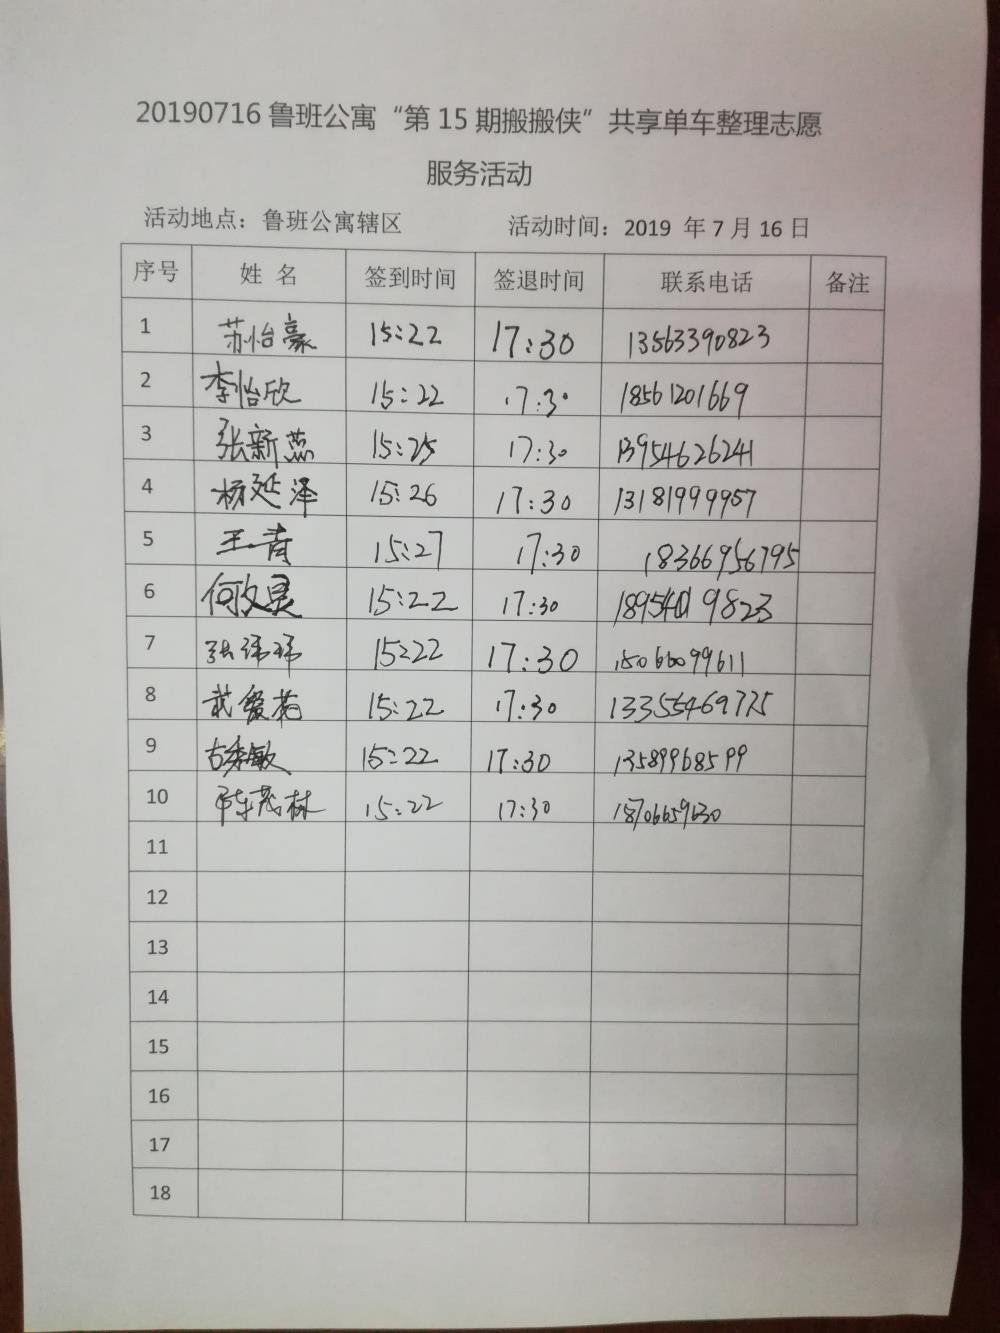 20190716 鲁班公寓“第 15 期搬搬侠”共享单车整理志愿
服务活动
活动地点：鲁班公寓辖区 活动时间：2019 年 7 月 16 日
序号 姓 名 签到时间 签退时间 联系电话 备注
1 苏怡豪 15:22 17:30 13563390823
2 李怡欣 15:22 17:30 18561201669
3 张新蕊 15:25 17:30 13954626241
4 杨延泽 15:26 17:30 13181999957
5 王青 15:27 17:30 18366956795
6 何文昊 15:22 17:30
7 张玮玮 15:22 17:30 15066099611
8 武爱 15:22 17:30 13355469775
9 古秀敏 15:22 17:30 13589968599
10 陈茂林 15:22 17:30 18706659630
11
12
13
14
15
16
17
18